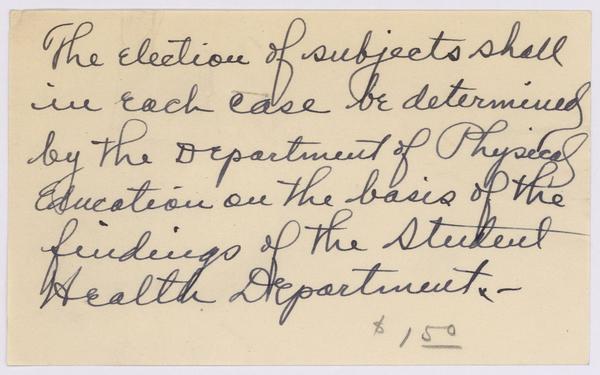 The election of subjects shall
in each case be determined
by the Department of Physical
Education on the basis of the
findings of the Student
Health Department.-
$ 1 50